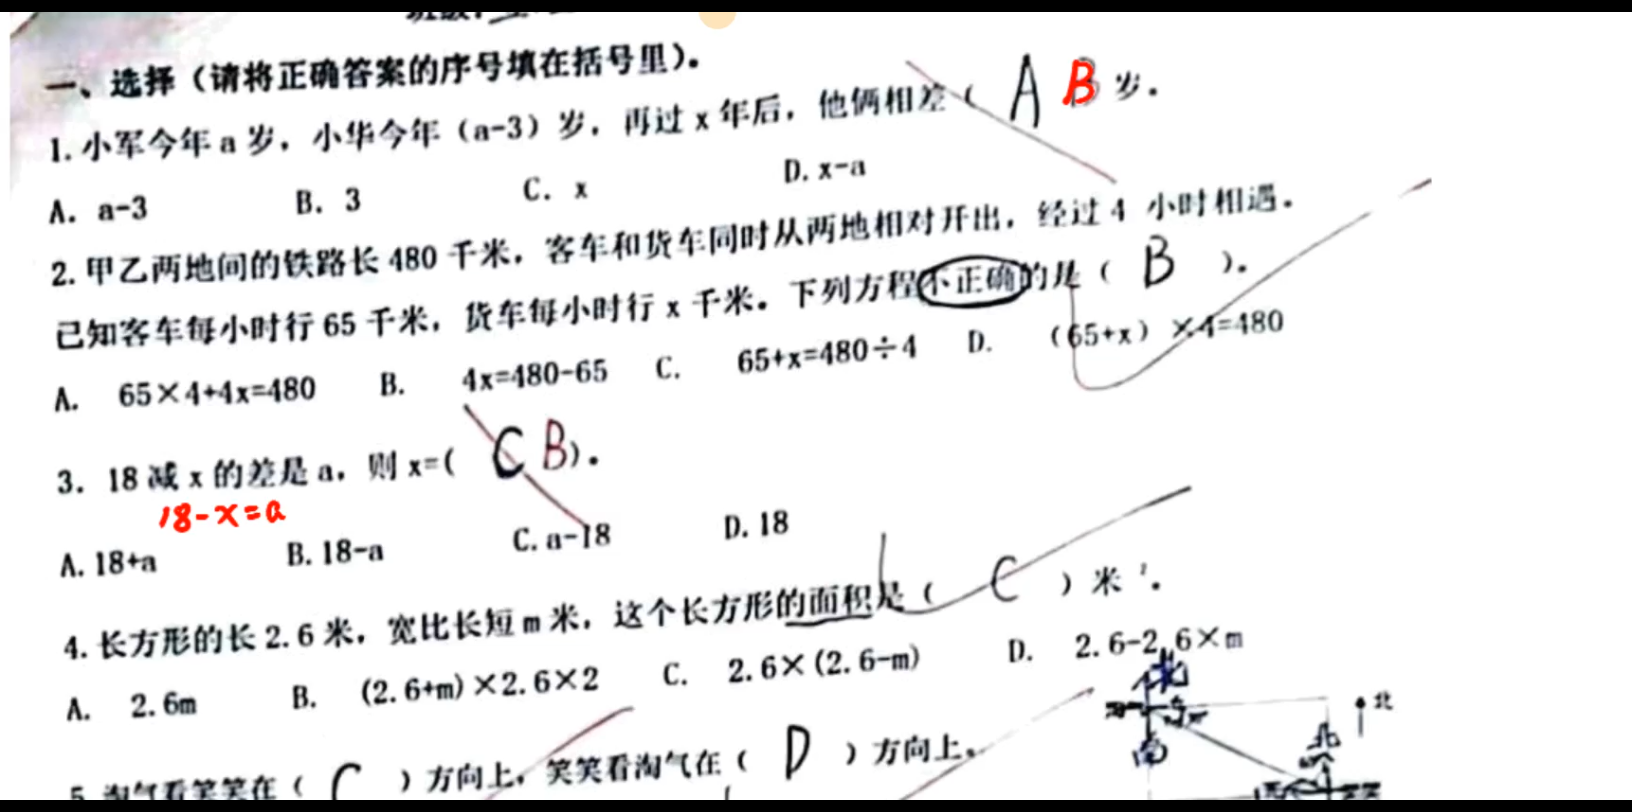 一、选择（请将正确答案的序号填在括号里）。
1. 小军今年 a 岁，小华今年（a-3）岁，再过 x 年后，他俩相差（ A B 岁.
A. a-3 B. 3 C. x D. x-a
2. 甲乙两地间的铁路长 480 千米，客车和货车同时从两地相对开出，经过 4 小时相遇.
已知客车每小时行 65 千米，货车每小时行 x 千米。下列方程不正确的是（ B ）.
A. 65×4+4x=480 B. 4x=480-65 C. 65+x=480÷4 D. （65+x）×4=480
3. 18 减 x 的差是 a，则 x=( C B).
18-x=a
A. 18+a B. 18-a C. a-18 D. 18
4. 长方形的长 2.6 米，宽比长短 m 米，这个长方形的面积是（ C ）米².
A. 2.6m B. (2.6+m)×2.6×2 C. 2.6×(2.6-m) D. 2.6-2.6×m
北
北
南
北
5 淘气看笑笑在（ C ）方向上，笑笑看淘气在（ D ）方向上.
西